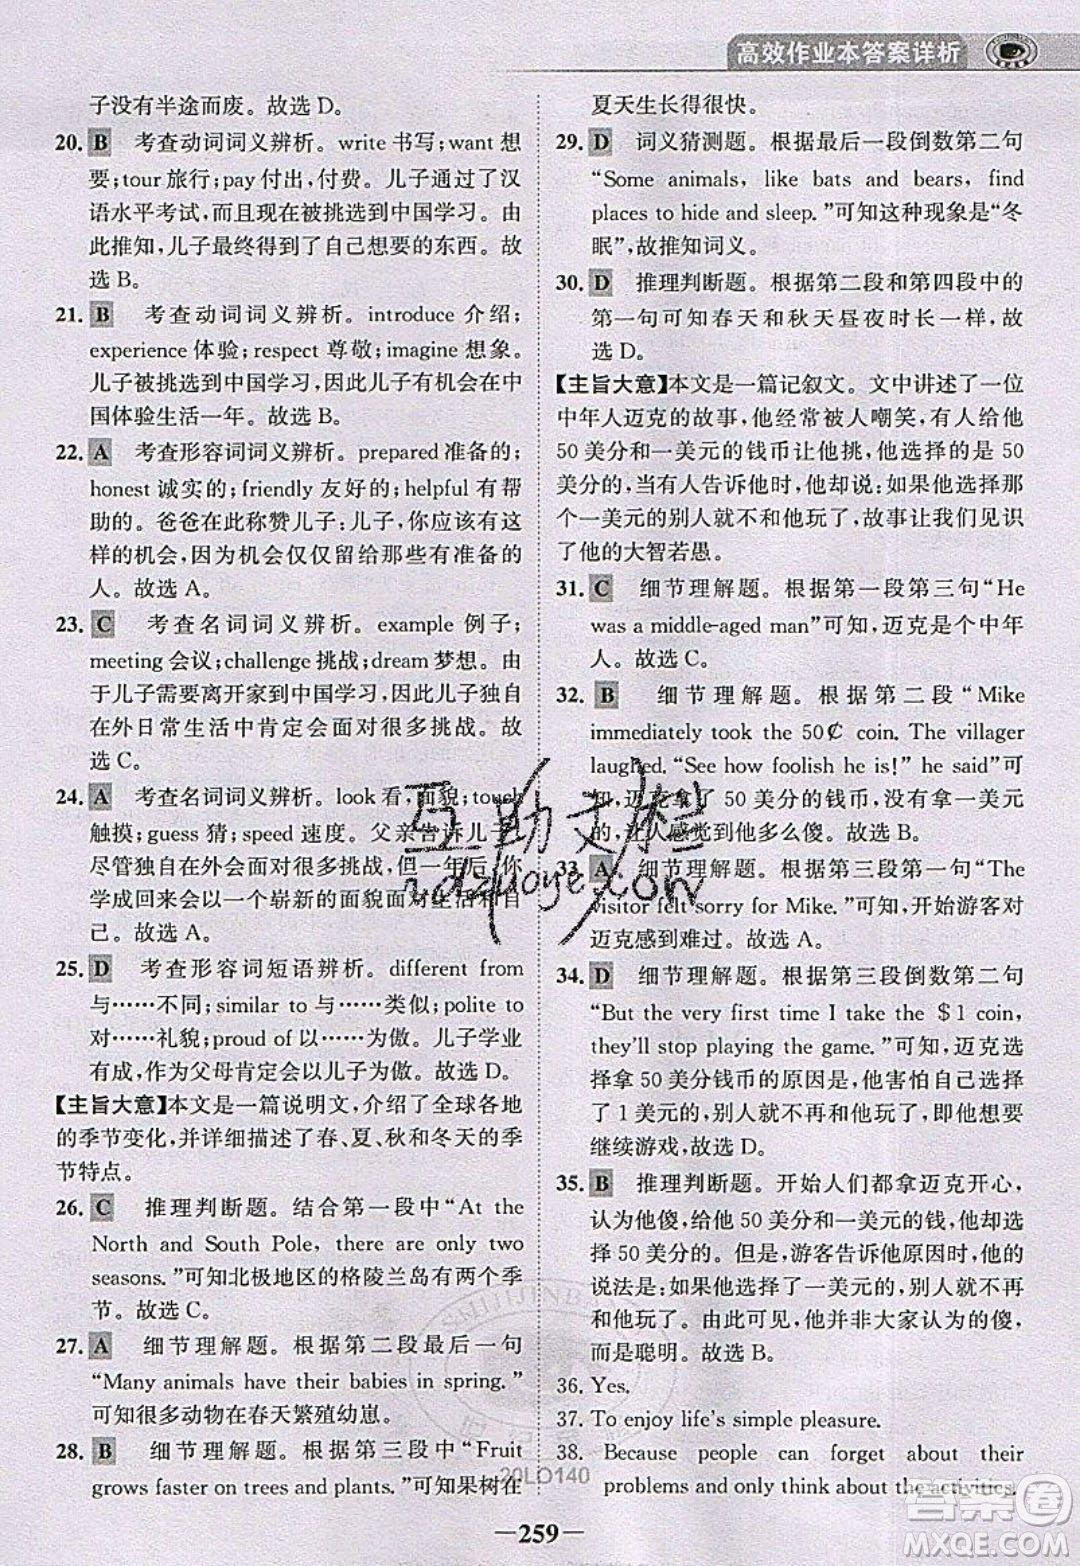 高效作业本答案详析
子没有半途而废。故选 D。
20. B 考查动词词义辨析。write 书写;want 想
要;tour 旅行;pay 付出,付费。儿子通过了汉
语水平考试,而且还被挑选到中国学习。由
此推知,儿子最终得到了他想要的东西。故
选 B。
21. B 考查动词词义辨析。introduce 介绍;
experience 体验;respect 尊敬;imagine 想象。
儿子被挑选到中国学习,因此儿子有机会在中
国体验生活一年。故选 B。
22. A 考查形容词词义辨析。prepared 准备的;
honest 诚实的;friendly 友好的;helpful 有帮
助的。爸爸在此称赞儿子:儿子,你应该有
这样的机会,因为机会仅仅留给那些有准备的人
。故选 A。
23. C 考查名词词义辨析。example 例子;
meeting 会议;challenge 挑战;dream 梦想。由
于儿子需要离开家到中国学习,因此儿子独自
在外日常生活中肯定会面对很多挑战。故
选 C。
24. A 考查名词词义辨析。look 看,面貌;touch
触摸;guess 猜;speed 速度。父亲告诉儿子:
尽管独自在外会面对很多挑战,但一年后,你
学成回来会以一个崭新的面貌面对生活和自
己。故选 A。
25. D 考查形容词短语辨析。different from
与……不同;similar to 与……类似;polite to
对……礼貌;proud of 以……为傲。儿子学业
有成,作为父母肯定会以儿子为傲。故选 D。
【主旨大意】本文是一篇说明文,介绍了全球各地
的季节变化,并详细描述了春、夏、秋和冬天的季
节特点。
26. C 推理判断题。结合第一段中“At the
North and South Pole, there are only two
seasons. ”可知北极地区的格陵兰岛有两个季
节。故选 C。
27. A 细节理解题。根据第二段最后一句
“Many animals have their babies in spring. ”
可知很多动物在春天繁殖幼崽。
28. B 细节理解题。根据第三段中“Fruit
grows faster on trees and plants. ”可知果树在
夏天生长得很快。
29. D 词义猜测题。根据最后一段倒数第二句
“Some animals, like bats and bears, find
places to hide and sleep. ”可知这种现象是“冬
眠”,故推知词义。
30. D 推理判断题。根据第二段和第四段中的
第一句可知春天和秋天昼夜时长一样,故
选 D。
【主旨大意】本文是一篇记叙文。文中讲述了一位
中年人迈克的故事,他经常被人嘲笑,有人给他
50 美分和一美元的钱币让他挑,他选择的是 50
美分的,当有人告诉他时,他却说:如果他选择那
个一美元的别人就不和他玩了,故事让我们见识
了他的大智若愚。
31. C 细节理解题。根据第一段第三句“He
was a middle-aged man”可知,迈克是个中年
人。故选 C。
32. B 细节理解题。根据第二段“Mike
immediately took the 50₵ coin. The villager
laughed. “See how foolish he is!” he said”可
知,迈克拿了 50 美分的钱币,没有拿一美元
的,让人感觉到他多么傻。故选 B。
33. A 细节理解题。根据第三段第一句“The
visitor felt sorry for Mike. ”可知,开始游客对
迈克感到难过。故选 A。
34. D 细节理解题。根据第三段倒数第二句
“But the very first time I take the $1 coin,
they'll stop playing the game. ”可知,迈克
选择拿 50 美分钱币的原因是,如果他选择拿
了 1 美元的,别人就不再和他玩了,即别人不想要
继续游戏,故选 D。
35. B 推理判断题。开始人们都拿迈克开心,
认为他傻,给他 50 美分和一美元的钱,他却选
择 50 美分的。游客告诉他原因时,迈克的
说法是:如果他选择了一美元的,别人就不再
和他玩了。由此可知,他并非大家认为的傻,
而是聪明。故选 B。
36. Yes.
37. To enjoy life's simple pleasure.
38. Because people can forget about their
problems and only think about the activities.
20LO140
259
互助文档
hdzuoye.com
答案圈
MXQE.COM